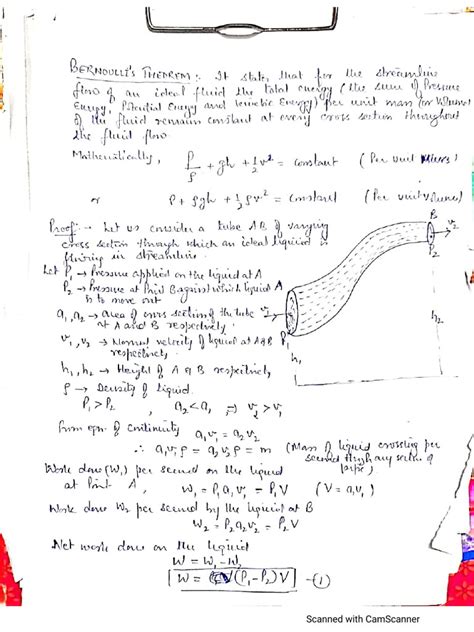 BERNOULLI'S THEOREM :- It states that for the streamline
flow of an ideal fluid the total energy (the sum of Pressure
Energy, Potential Energy and kinetic Energy) per unit mass (or Volume)
of the fluid remains constant at every cross section throughout
the fluid flow.
Mathematically, P/ρ + gh + ½v² = constant (Per unit Mass)
or P + ρgh + ½ρv² = constant (Per unit volume)
Proof :- Let us consider a tube AB of varying
cross section through which an ideal liquid is
flowing in streamline.
Let P₁ → Pressure applied on the liquid at A
P₂ → Pressure at Point B against which liquid
is to move out
a₁, a₂ → Area of cross section of the tube
at A and B respectively
v₁, v₂ → Normal velocity of liquid at A & B
respectively
h₁, h₂ → Height of A & B respectively
ρ → Density of liquid
P₁ > P₂ , a₂ < a₁ ⇒ v₂ > v₁
B
v₂
P₂
A
v₁
P₁
h₁
h₂
From eqn. of continuity a₁v₁ = a₂v₂
∴ a₁v₁ρ = a₂v₂ρ = m (Mass of liquid crossing per
second through any section of
pipe)
Work done (W₁) per second on the liquid
at Point A, W₁ = P₁a₁v₁ = P₁V (V = a₁v₁)
Work done W₂ per second by the liquid at B
W₂ = P₂a₂v₂ = P₂V
Net work done on the liquid
W = W₁ - W₂
W = (P₁-P₂)V - (1)
Scanned with CamScanner